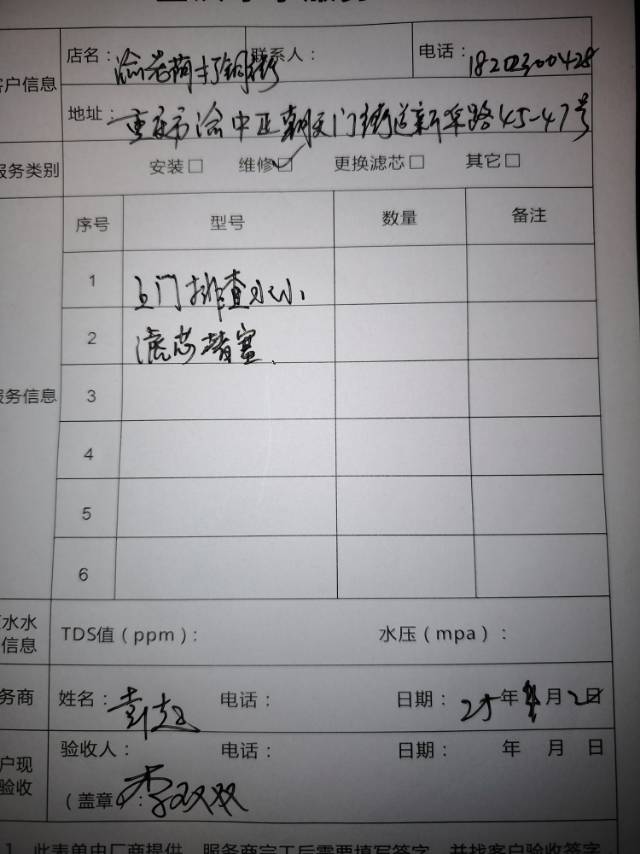 店名： 联系人： 电话：
客户信息
地址：重庆市渝中区朝天门街道新华路45-47号
服务类别 安装□ 维修☑ 更换滤芯□ 其它□
序号 型号 数量 备注
1 上门排查水小
2 滤芯堵塞
服务信息 3
4
5
6
水水
信息 TDS值（ppm）： 水压（mpa）：
务商 姓名： 电话： 日期：25年 月 日
户现
验收 验收人： 电话： 日期： 年 月 日
（盖章）：李双双
1 此表单由厂商提供，服务商完工后需要填写签字，并找客户验收签字